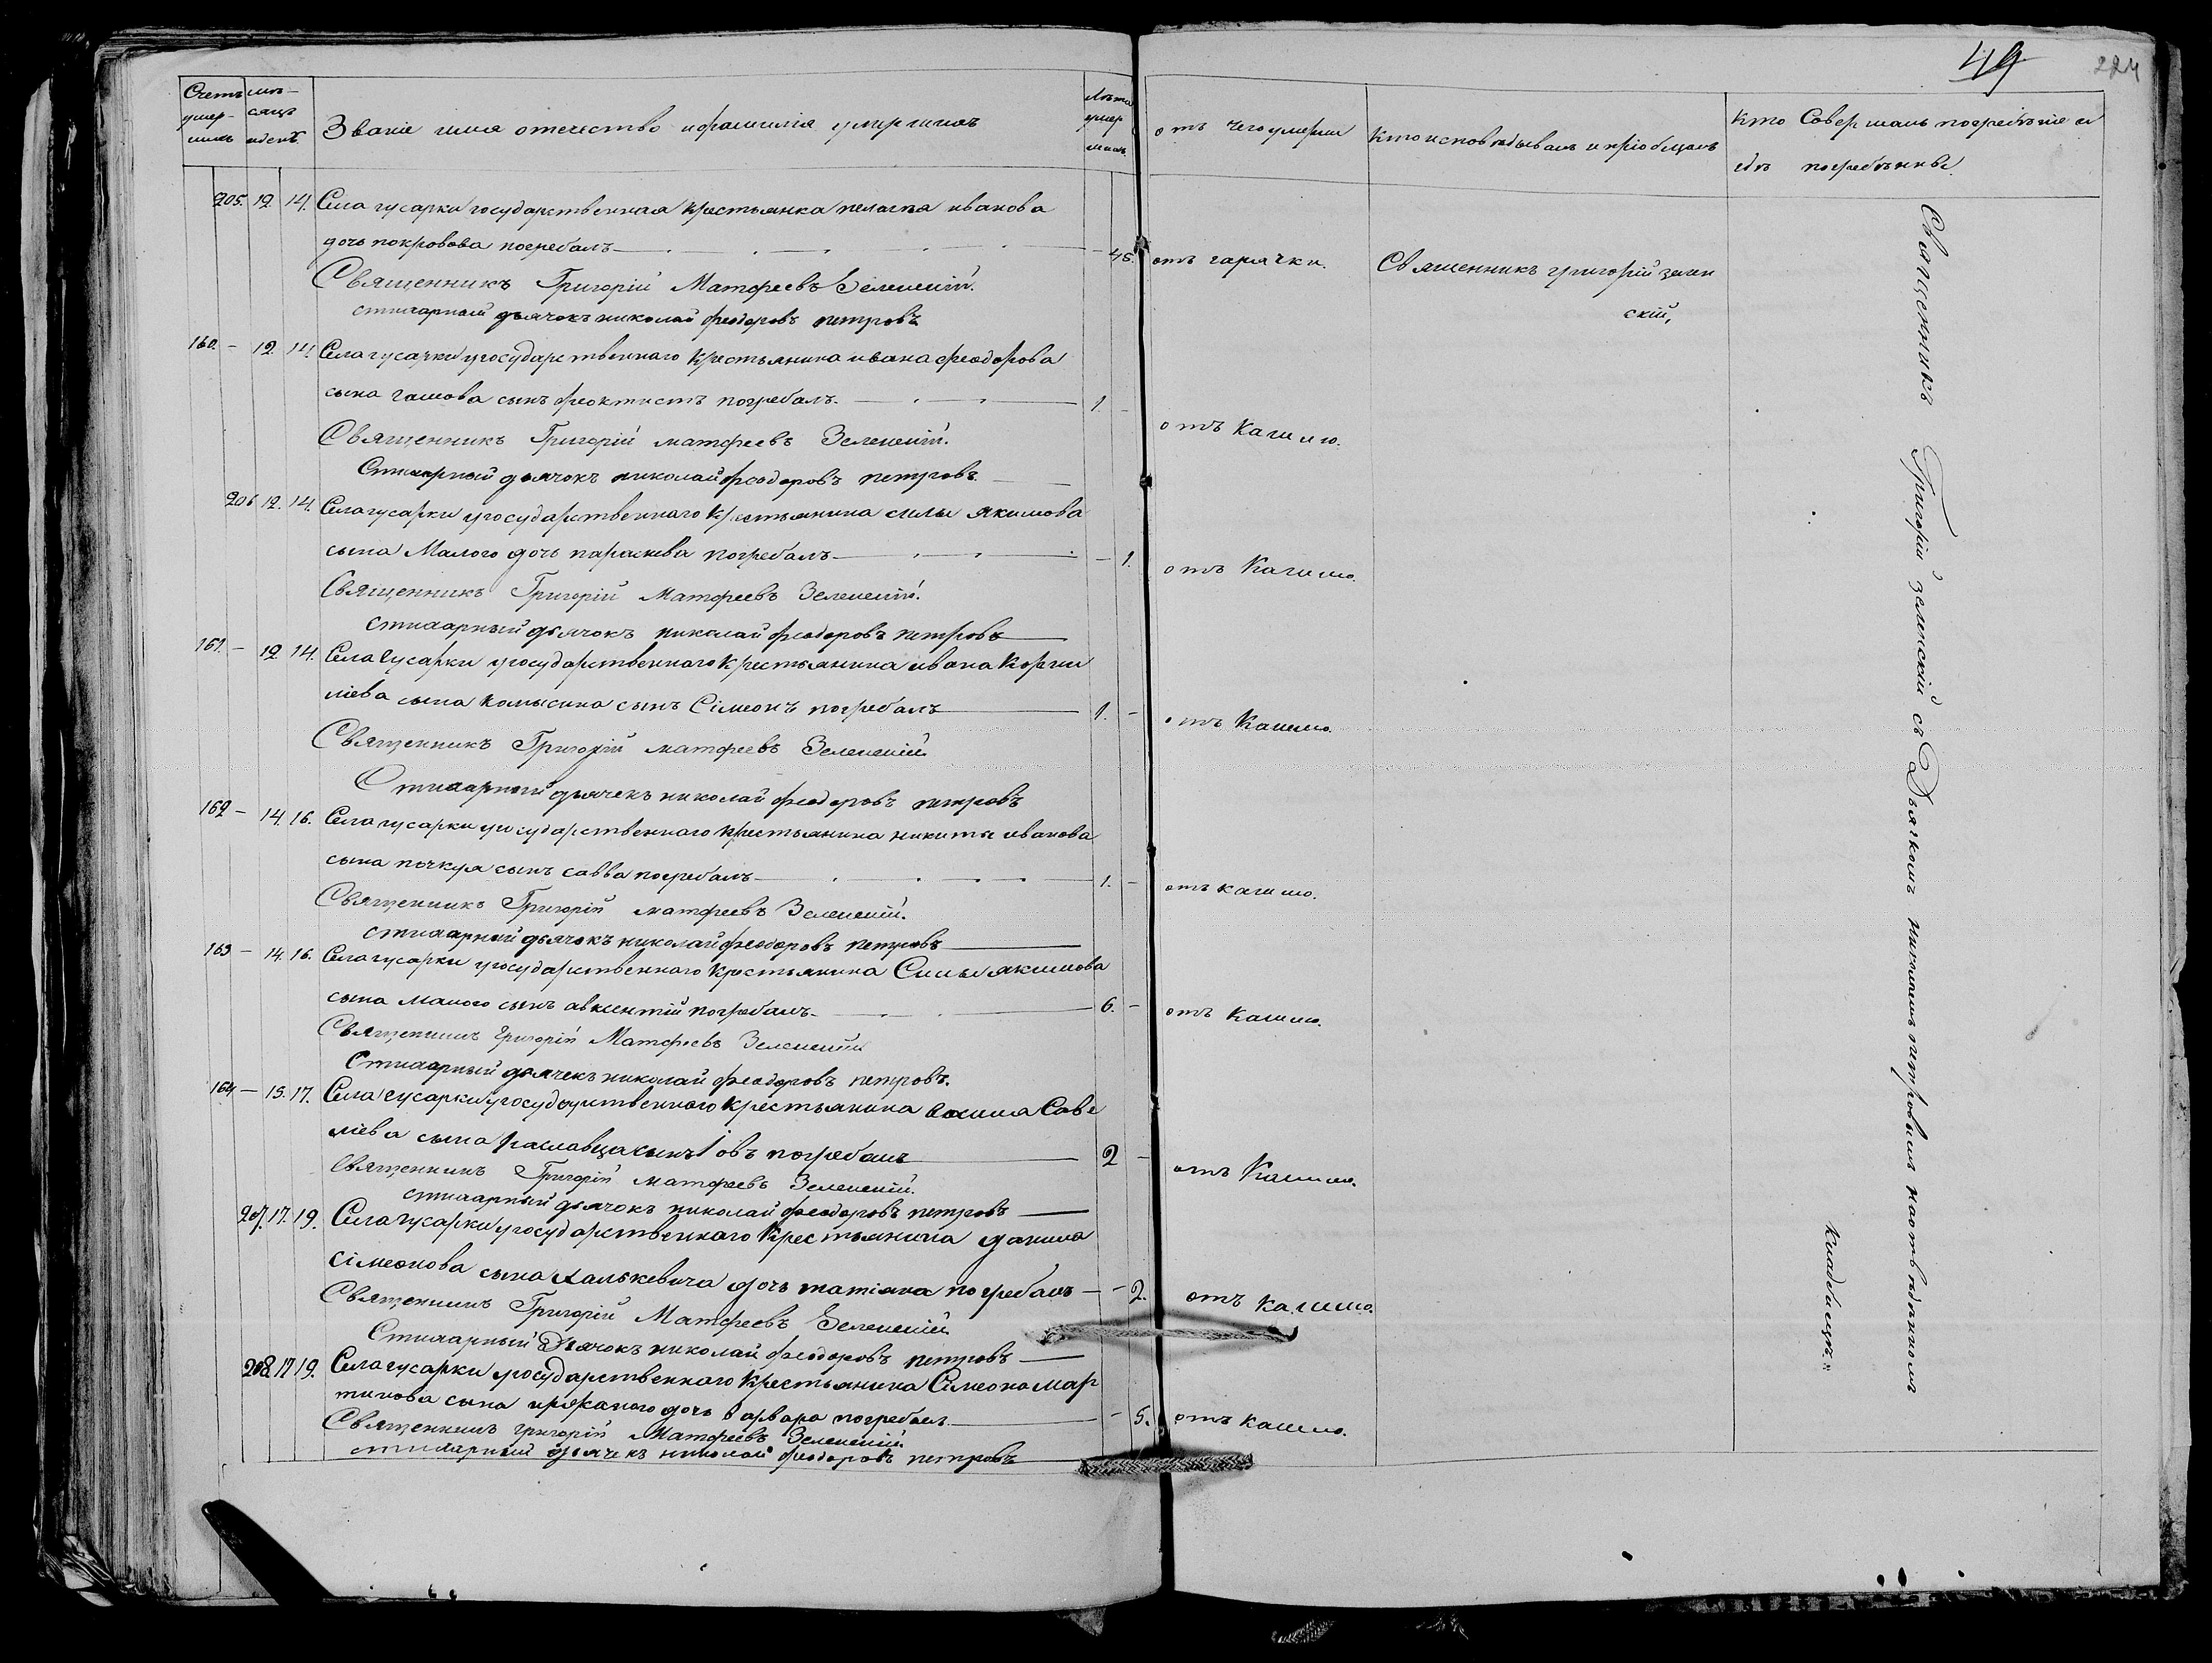 49
224
Счетъ умер-шихъ
мѣ-сяцъ и день
Званіе имя отечество и фамилія умершихъ
Лѣта умер шихъ.
отъ чего умерли
Кто исповѣдывалъ и пріобщалъ
Кто Совершалъ погребѣніе и
гдѣ погребѣнны
205. 12 14. Села гусарки государственная крестьянка пелагѣя иванова
дочь покровова погребалъ — 45. отъ гарячки. Священникъ григорій зелен
скій,
Священникъ Григорій Матфеевъ Зеленскій.
стихарный дьячокъ николай феодоровъ петровъ
160. — 12 14. Села гусарки у государственнаго крестьянина ивана феодорова
сына сынъ феоктистъ погребалъ. — 1 — отъ Кашлю.
Священникъ Григорій матфеевъ Зеленскій.
Стихарный дьячокъ николай феодоровъ петровъ.
206 12. 14. Села гусарки у государственнаго крестьянина силы якимова
сына Малого дочь параскева погребалъ — 1. отъ Кашлю.
Священникъ Григорій Матфеевъ Зеленскій.
стихарный дьячокъ николай феодоровъ петровъ
161. — 12 14. Села Гусарки у государственнаго крестьянина ивана Корни
ліева сына сынъ Сімеонъ погребалъ 1. — отъ Кашлю.
Священникъ Григорій матфеевъ Зеленскій
Стихарный дьячекъ николай феодоровъ петровъ
162 — 14. 16. Села гусарки у государственнаго крестьянина никиты иванова
сына сынъ савва погребалъ — 1. — отъ кашлю.
Священникъ Григорій матфеевъ Зеленскій.
стихарный дьячокъ николай феодоровъ петровъ
163 — 14. 16. Села гусарки у государственнаго крестьянина Силы якимова
сына малого сынъ авксентій погребалъ — 6. — отъ Кашлю.
Священникъ Григорій Матфеевъ Зеленскій
Стихарный дьячекъ николай феодоровъ петровъ.
164 — 15. 17. Села гусарки у государственнаго крестьянина Саве
ліева сына сынъ Іовъ погребалъ 2 — отъ Кашлю.
Священникъ Григорій матфеевъ Зеленскій.
стихарный дьячокъ николай феодоровъ петровъ
207. 17. 19. Села гусарки у государственнаго Крестьянина данила
Сімеонова сына дочь татіяна погребалъ — 2. отъ кашлю.
Священникъ Григорій Матфеевъ Зеленскій
Стихарный Дьячокъ николай феодоровъ петровъ
208 17 19. Села гусарки у государственнаго Крестьянина Сімеона Мар
тинова сына дочь варвара погребалъ — 5. отъ кашлю.
Священникъ григорій Матфеевъ Зеленскій
стихарный дьячекъ николай феодоровъ петровъ
Священникъ Григорій зеленскій съ Дьячкомъ николаемъ петровымъ на отведенномъ
кладбищѣ